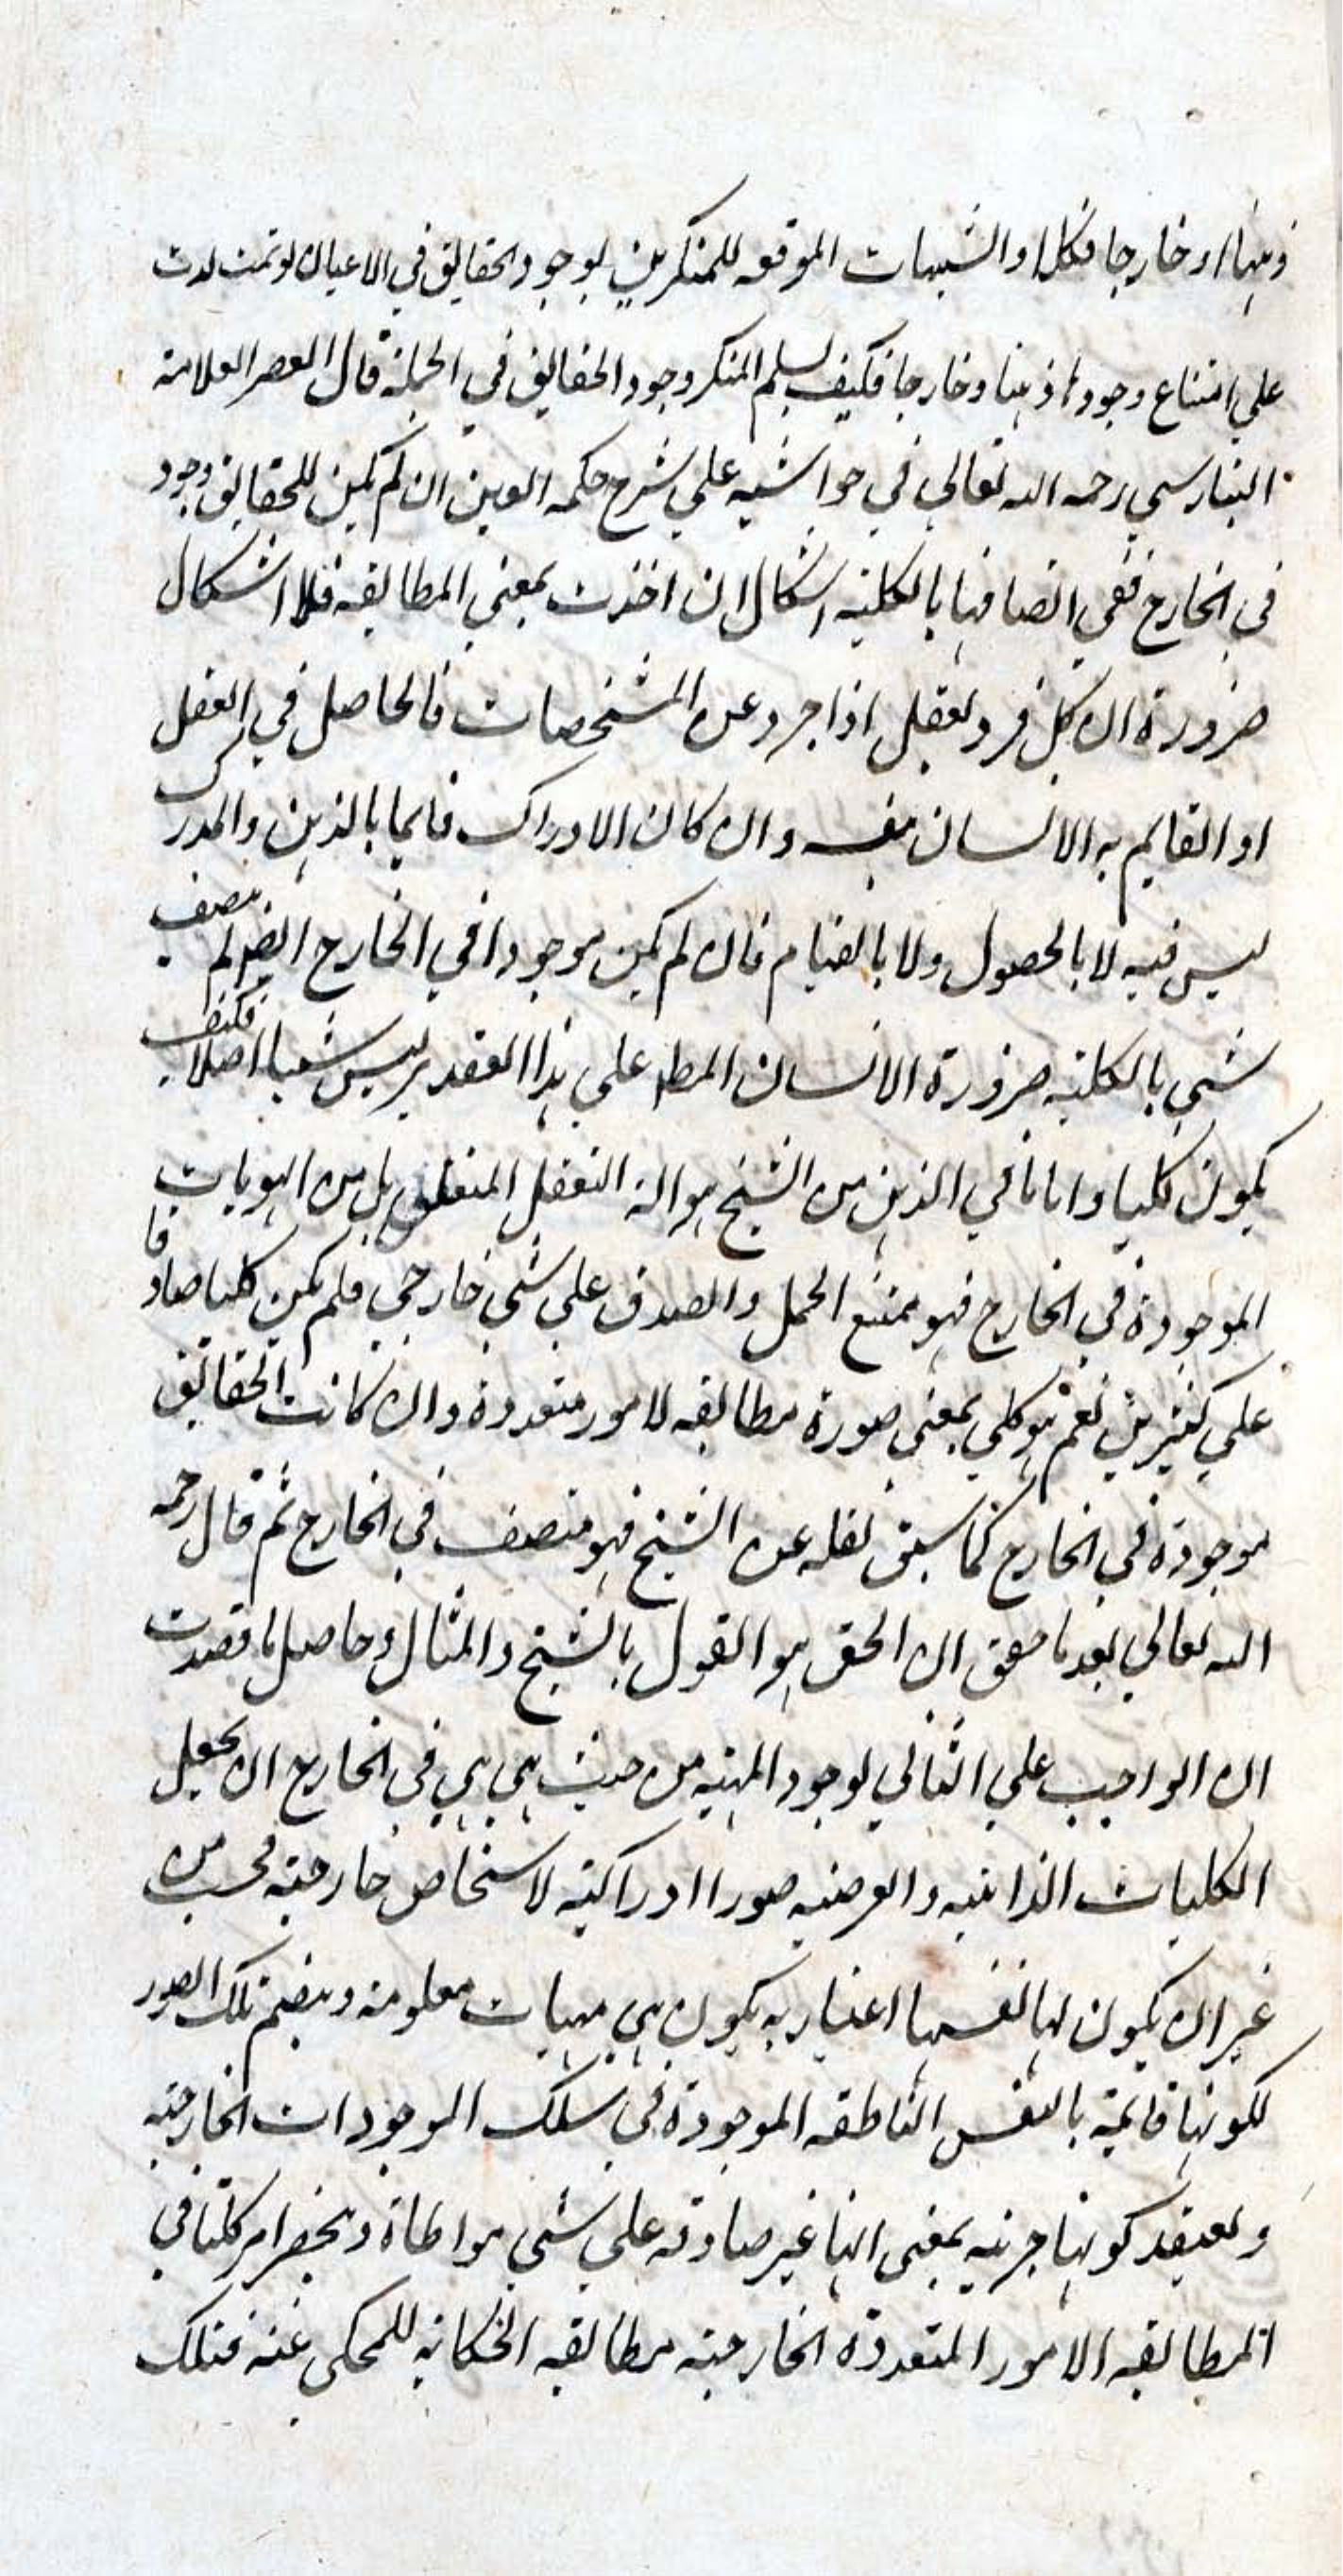 ذهنا او خارجا فكل او الشبهات الموقعه للمنكرين لوجود الحقايق في الاعيان لو تمت لدت
علي امتناع وجودها ذهنا وخارجا فكيف يسلم المنكر وجود الحقايق في الجملة قال العصر العلامة
البنارسي رحمه الله تعالي في حواشيه علي شرح حكمه العين ان لم يكن للحقايق وجود
في الخارج ففي اتصافها بالكليه اشكال ان اخذت بمعني المطابقه فلا اشكال
ضرورة ان كل فرد تعقل اذا جرد عن المشخصات فالحاصل في العقل
او القايم به الانسان نفسه وان كان الادراك قايما بالذهن والمدرك
ليس فيه لا بالحصول ولا بالقيام فان لم يكن موجودا في الخارج ايضا لم يتصف
شي بالكليه ضرورة الانسان المط علي هذا التقدير ليس شيئا اصلا فكيف
يكون كليا واما ما في الذهن من الشبح هوالة التعقل المتعلق بل من الهويات
الموجودة في الخارج فهو ممتنع الحمل والصدق علي شي خارجي فلم يكن كليا صادقا
علي كثيرين نعم هو كلي بمعني صورة مطابقه لامور متعددة وان كانت الحقائق
موجودة في الخارج كما سبق نقله عن الشيخ فهو متصف في الخارج ثم قال رحمه
الله تعالي بعد ما حقق ان الحق هو القول بالشبح والمثال وحاصل ما قصدت
ان الواجب علي النافي لوجود المهيه من حيث هي هي في الخارج ان يجعل
الكليات الذاتيه والعرضيه صورا ادراكيه لاشخاص خارجيه فحسب من
غير ان يكون لها انفسها اعتبار به يكون هي مهيات معلومة وينضم تلك الصور
لكونها قايمة بالنفس الناطقه الموجودة في سلك الموجودات الخارجيه
ويعتقد كونها جزئيه بمعني انها غير صادقه علي شي مواطاة وينحصر امر كليتها في
المطابقه الامور المتعددة الخارجيه مطابقه الحكايه للمحكي عنه فتلك